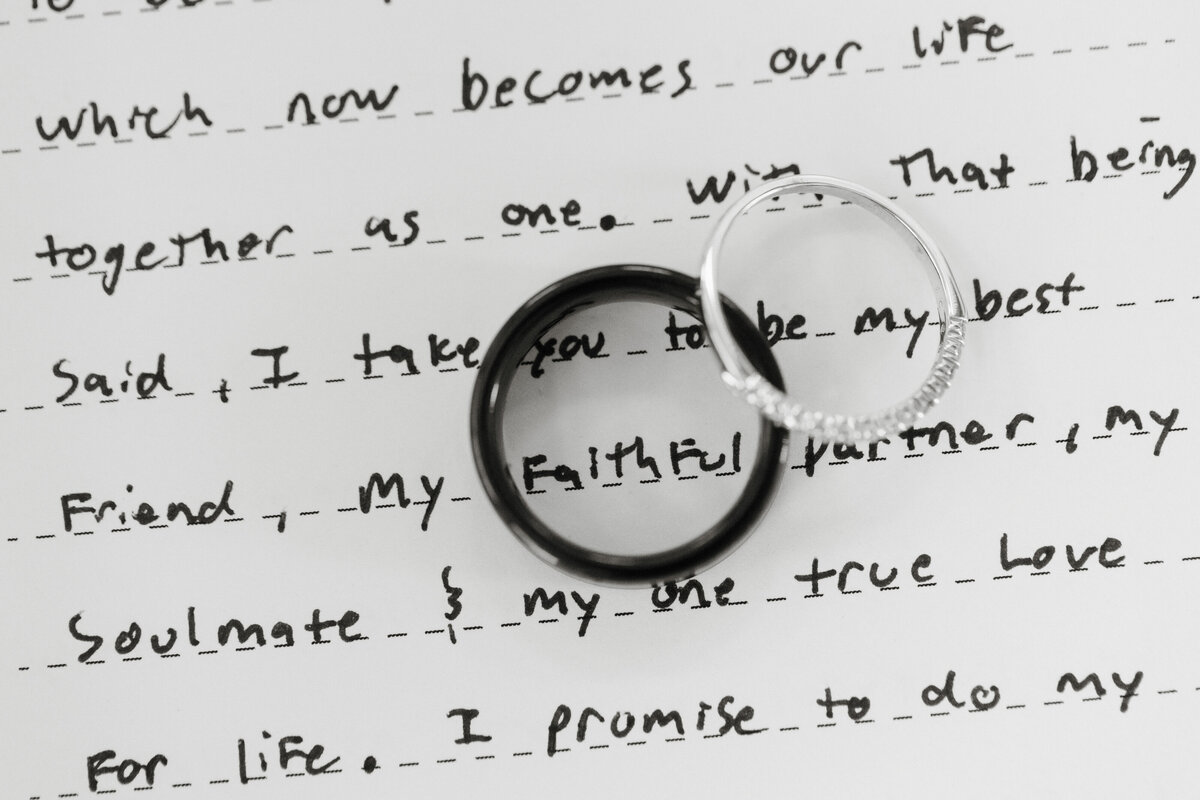 which now becomes our life
together as one. with that being
said, I take you to be my best
Friend, my Faithful partner, my
Soulmate & my one true Love
For life. I promise to do my